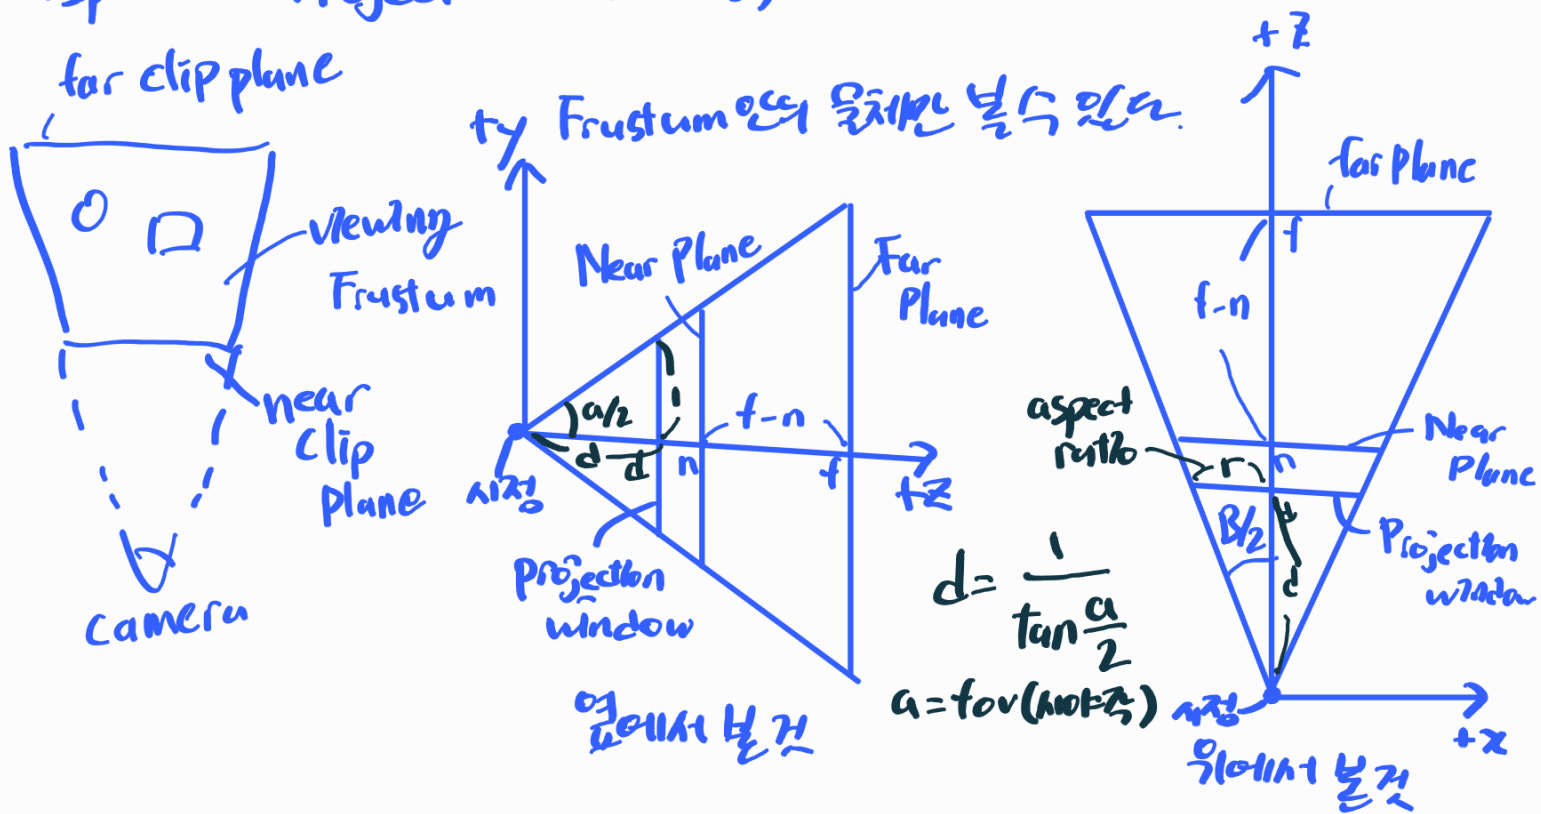 far clip plane
viewing
Frustum
near
clip
plane
camera
Frustum 안의 물체만 볼 수 있다.
+y
Near plane
Far
plane
a/2
d
d
1
n
f-n
f
+z
시점
projection
window
옆에서 볼 것
d = 1 / tan a/2
a = fov(시야각)
+z
far plane
f
f-n
aspect
ratio
r
n
Near
plane
B/2
d
d
Projection
window
시점
+x
위에서 볼 것